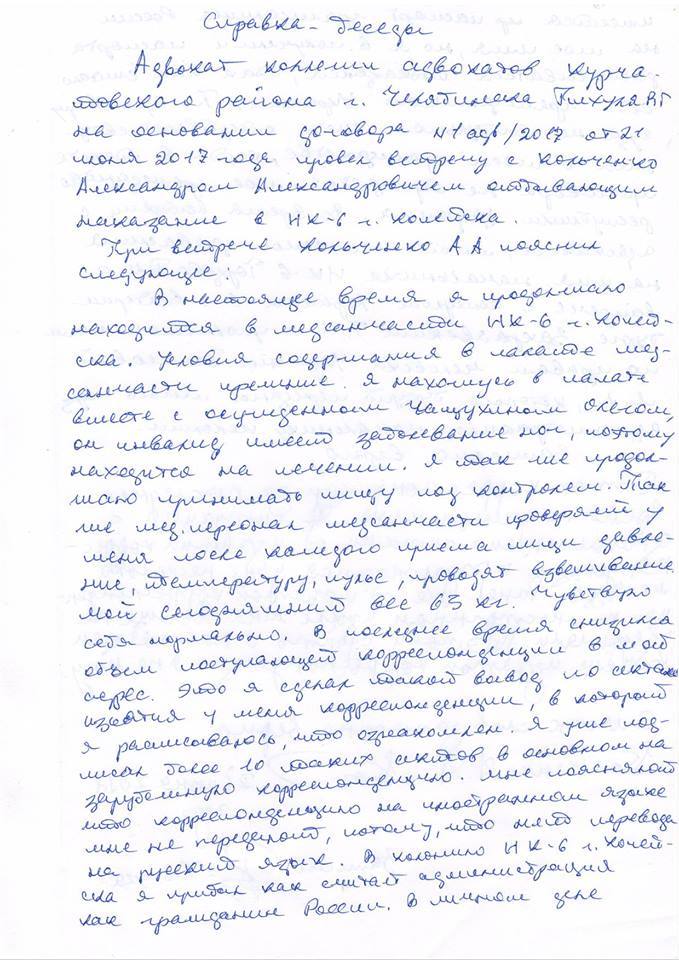 Справка-беседы
Адвокат коллегии адвокатов Курча-
товского района г. Челябинска Пихуля ВГ
на основании договора N1 адв/2017 от 21
июня 2017 года провел встречу с Кольченко
Александром Александровичем отбывающим
наказание в ИК-6 г. Копейска.
При встрече Кольченко А А пояснил
следующие:
В настоящее время я продолжаю
находится в медсанчасти ИК-6 г. Копей-
ска. Условия содержания в палате мед-
санчасти прежние. Я нахожусь в палате
вместе с осужденным Чащухиным Олегом,
он инвалид имеет заболевание ног, поэтому
находится на лечении. Я так же продол-
жаю принимать пищу под контролем. Так
же мед.персонал медсанчасти проверяет у
меня после каждого приема пищи давле-
ние, температуру, пульс, проводят взвешивание
мой сегодняшний вес 63 кг. Чувствую
себя нормально. В последнее время снизился
объем поступающей корреспонденции в мой
адрес. Это я сделал такой вывод по актам
изъятия у меня корреспонденции, в которой
я расписываюсь, что ознакомлен. Я уже под-
писал более 10 таких актов в основном на
зарубежную корреспонденцию. Мне пояснял
что корреспонденцию на иностранном языке
мне не передают, потому, что нет перевода
на русский язык. В колонию ИК-6 г. Копей-
ска я прибыл как считает администрация
как гражданин России. В личном деле